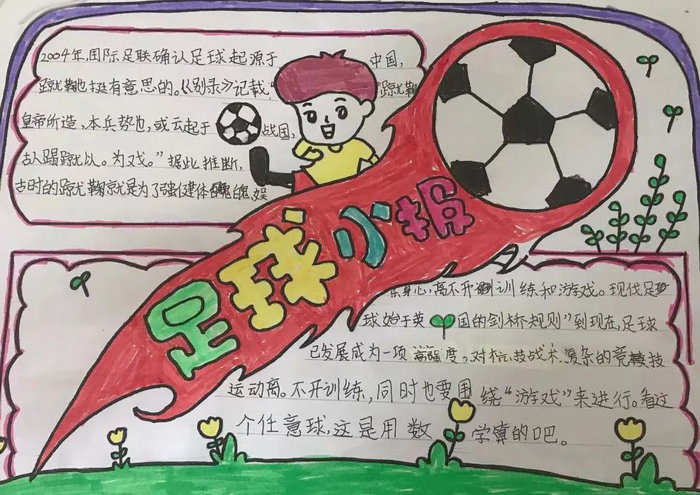 2004年,国际足联确认足球起源于中国,
蹴鞠也挺有意思的。《别录》记载,“蹴鞠
皇帝所造,本兵势也,或云起于战国,
古人蹋蹴以。为戏。”据此推断,
古时的蹴鞠就是为了强健体魄,娱
足球小报
乐身心,离不开训练和游戏。现代足
球始于英国的剑桥规则”到现在,足球
已发展成为一项高强度,对抗,技战术复杂的竞技
运动离。不开训练,同时也要围绕“游戏”来进行。看这
个任意球,这是用数学算的吧。